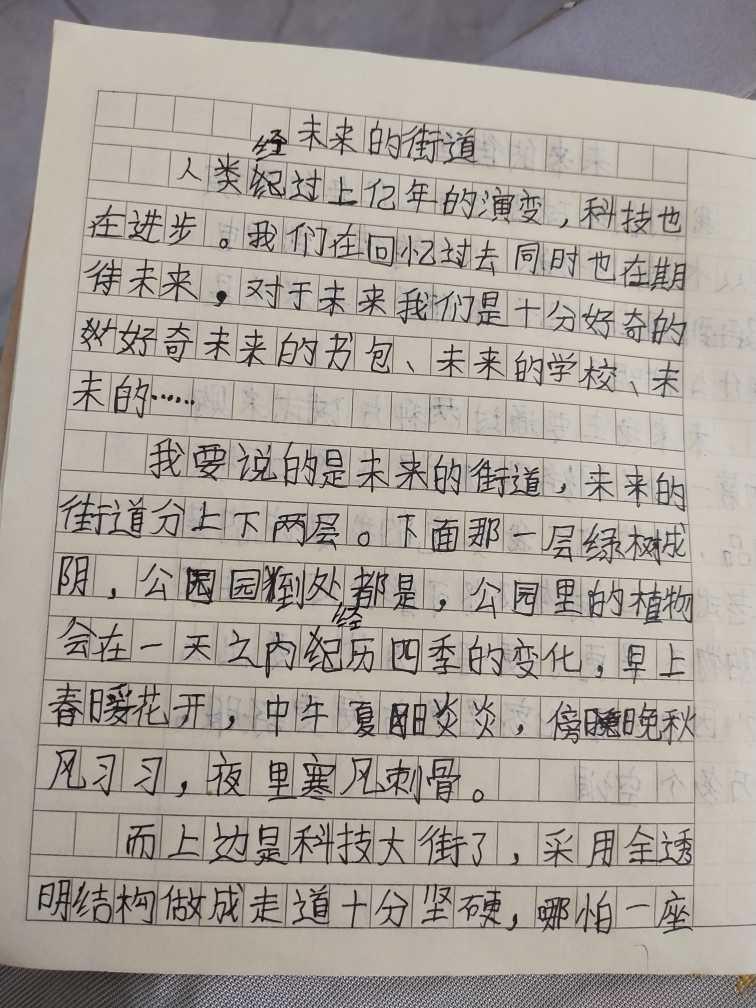 未来的街道
人类经过上亿年的演变，科技也
在进步。我们在回忆过去同时也在期
待未来，对于未来我们是十分好奇的
好奇未来的书包、未来的学校、未
来的……
我要说的是未来的街道，未来的
街道分上下两层。下面那一层绿树成
阴，公园到处都是，公园里的植物
会在一天之内经历四季的变化，早上
春暖花开，中午夏日炎炎，傍晚秋
风习习，夜里寒风刺骨。
而上边是科技大街了，采用全透
明结构做成走道十分坚硬，哪怕一座